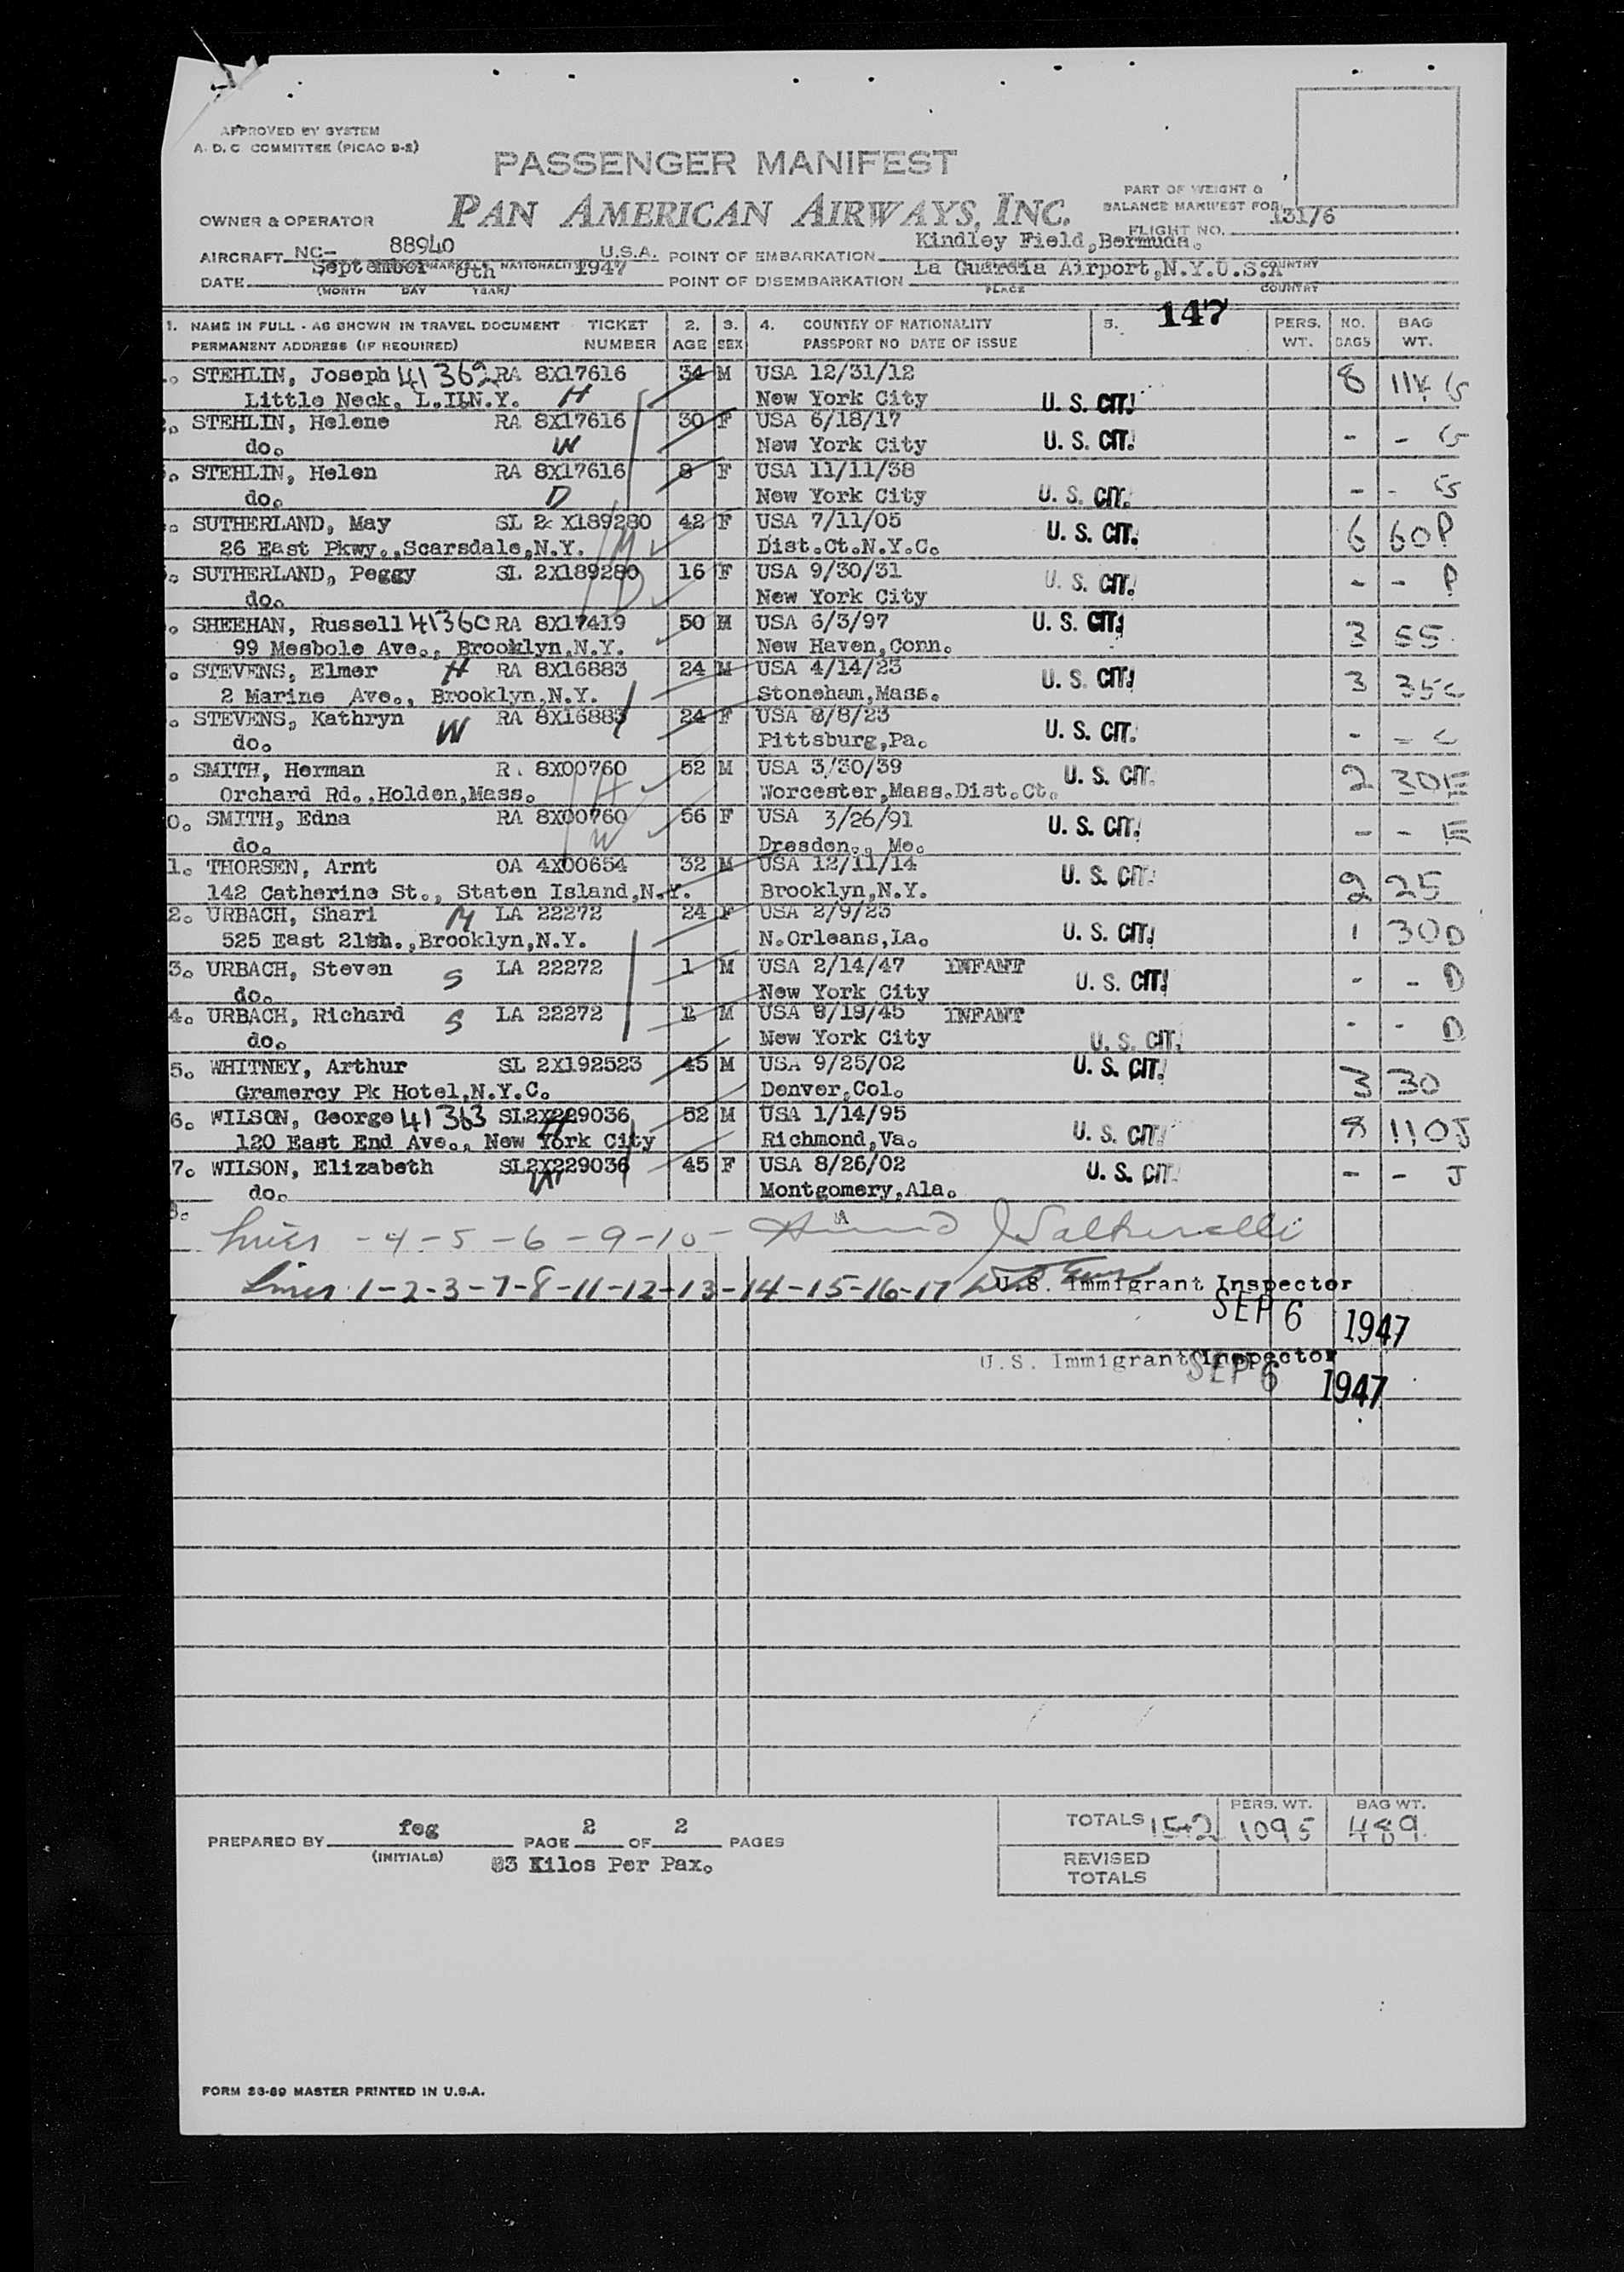 APPROVED BY SYSTEM
A. D. C. COMMITTEE (PICAO 9-2)
PASSENGER MANIFEST
PAN AMERICAN AIRWAYS, INC.
PART OF WEIGHT &
BALANCE MANIFEST FOR
FLIGHT NO. 131/6
OWNER & OPERATOR
AIRCRAFT NC- 88940 U.S.A. POINT OF EMBARKATION Kindley Field,Bermuda.
DATE September 6th 1947 POINT OF DISEMBARKATION La Guardia Airport,N.Y.U.S.A
(MONTH DAY YEAR) PLACE COUNTRY
147
1. NAME IN FULL - AS SHOWN IN TRAVEL DOCUMENT TICKET 2. 3. 4. COUNTRY OF NATIONALITY 5. PERS. NO. BAG
PERMANENT ADDRESS (IF REQUIRED) NUMBER AGE SEX PASSPORT NO DATE OF ISSUE WT. BAGS WT.
STEHLIN, Joseph 41362 RA 8X17616 34 M USA 12/31/12 8 G
Little Neck, L.I.N.Y. H New York City U. S. CIT.
STEHLIN, Helene RA 8X17616 30 F USA 6/18/17 - - G
do. W New York City U. S. CIT.
STEHLIN, Helen RA 8X17616 8 F USA 11/11/38 - - G
do. D New York City U. S. CIT.
SUTHERLAND, May SL 2X189280 42 F USA 7/11/05 U. S. CIT. 6 60P
26 East Pkwy.,Scarsdale,N.Y. M Dist.Ct.N.Y.C.
SUTHERLAND, Peggy SL 2X189280 16 F USA 9/30/31 U. S. CIT. - - P
do. D New York City
SHEEHAN, Russell 41360 RA 8X17419 50 M USA 6/3/97 U. S. CIT. 3 55
99 Mesbole Ave., Brooklyn,N.Y. New Haven,Conn.
STEVENS, Elmer H RA 8X16883 24 M USA 4/14/23 U. S. CIT. 3 35C
2 Marine Ave., Brooklyn,N.Y. Stoneham,Mass.
STEVENS, Kathryn W RA 8X16883 24 F USA 8/8/23 U. S. CIT. - - C
do. Pittsburg,Pa.
SMITH, Herman R. 8X00760 52 M USA 3/30/39 U. S. CIT. 2 30E
Orchard Rd.,Holden,Mass. H Worcester,Mass.Dist.Ct.
0. SMITH, Edna RA 8X00760 56 F USA 3/26/91 U. S. CIT. - - E
do. W Dresden., Me.
1. THORSEN, Arnt OA 4X00654 32 M USA 12/11/14 U. S. CIT. 2 25
142 Catherine St., Staten Island,N.Y. Brooklyn,N.Y.
2. URBACH, Shari M LA 22272 24 F USA 2/9/23 U. S. CIT. 1 30D
525 East 21th.,Brooklyn,N.Y. N.Orleans,La.
3. URBACH, Steven S LA 22272 1 M USA 2/14/47 INFANT U. S. CIT. - - D
do. New York City
4. URBACH, Richard S LA 22272 M USA INFANT - - D
do. New York City U. S. CIT.
5. WHITNEY, Arthur SL 2X192523 45 M USA 9/25/02 U. S. CIT. 3 30
Gramercy Pk Hotel,N.Y.C. Denver,Col.
6. WILSON, George 41363 SL2X229036 52 M USA 1/14/95 U. S. CIT. 8 110J
120 East End Ave., New York City H Richmond,Va.
7. WILSON, Elizabeth SL2X229036 45 F USA 8/26/02 U. S. CIT. - - J
do. W Montgomery,Ala.
Lines - 4 - 5 - 6 - 9 - 10 -
Lines 1-2-3-7-8-11-12-13-14-15-16-17
U.S. Immigrant Inspector
SEP 6 1947
U.S. Immigrant Inspector
SEP 6 1947
PREPARED BY feg PAGE 2 OF 2 PAGES
(INITIALS) 83 Kilos Per Pax.
PERS. WT. BAG WT.
TOTALS 1542 1095 489
REVISED
TOTALS
FORM 26-89 MASTER PRINTED IN U.S.A.